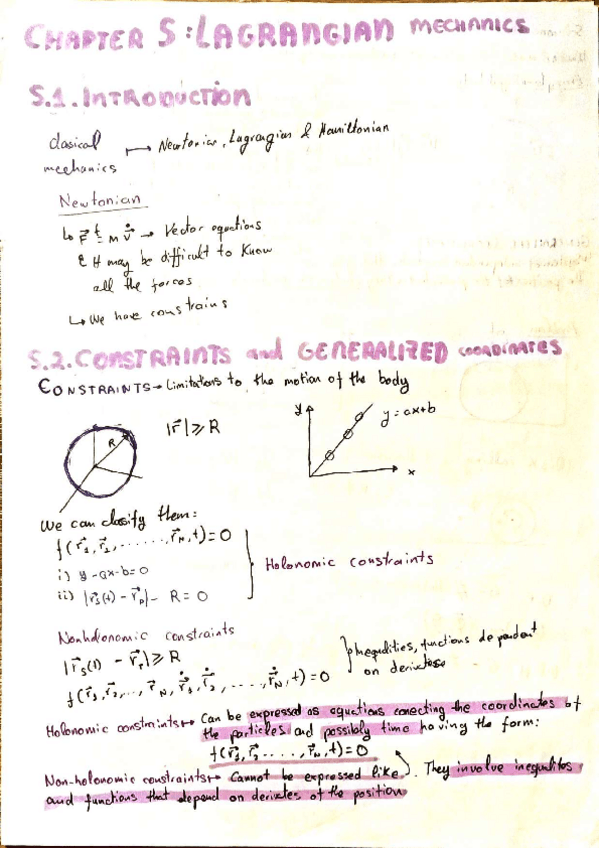 CHAPTER 5: LAGRANGIAN MECHANICS
5.1. INTRODUCTION
clasical mechanics ↦ Newtonian, Lagrangian & Hamiltonian
Newtonian
↳ F⃗ = m v⃗̇ → Vector equations
It may be difficult to know
all the forces
↳ We have constrains
5.2. CONSTRAINTS and GENERALIZED COORDINATES
CONSTRAINTS → Limitations to the motion of the body
R
|r⃗| ⩾ R
y
y = ax+b
x
We can classify them:
f(r⃗₁, r⃗₂, ......., r⃗N, t) = 0
i) y - ax - b = 0
ii) |r⃗s(t) - r⃗p| - R = 0
Holonomic constraints
Nonholonomic constraints
|r⃗s(t) - r⃗p| ⩾ R
f(r⃗₁, r⃗₂, ..., r⃗N, r⃗̇₁, r⃗̇₂, ...., r⃗̇N, t) = 0
Inequalities, functions dependant
on derivatese
Holonomic constraints ↦ Can be expressed as equations conecting the coordinates of
the particles and possibly time having the form:
f(r⃗₁, r⃗₂ ....., r⃗N, t) = 0
Non-holonomic constraints ↦ Cannot be expressed like. They involve inequalites
and functions that depend on derivates of the position